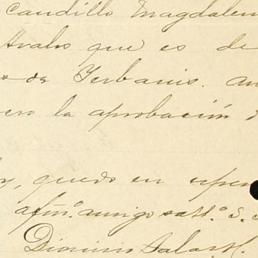 Caudillo Magdalen
Avalos que es de
de Yerbanis. an
ero la aprobación d
, quedo en espe
afmo. amigo satto. S. S.
Dionisio Salas